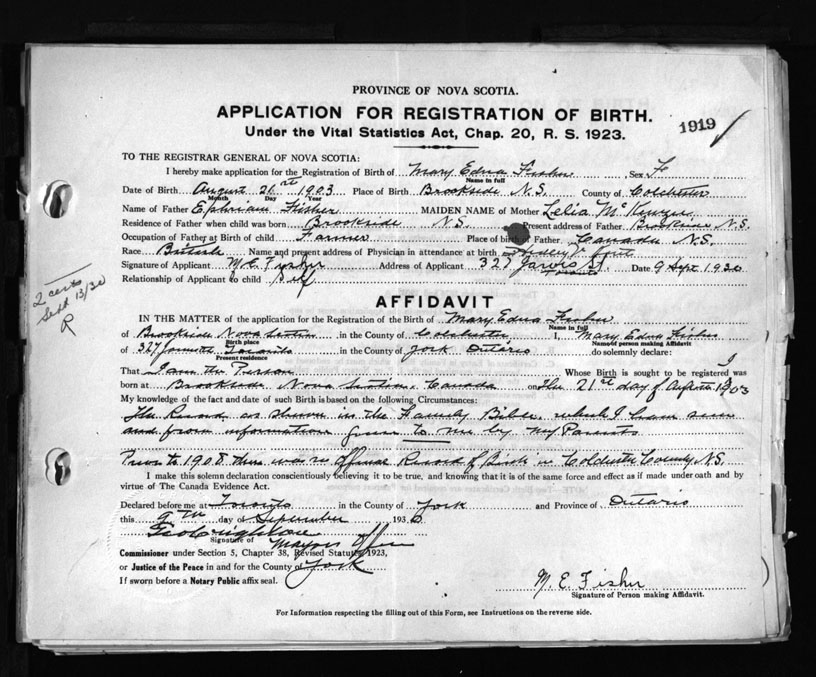 PROVINCE OF NOVA SCOTIA.
APPLICATION FOR REGISTRATION OF BIRTH.
Under the Vital Statistics Act, Chap. 20, R. S. 1923.
1919
TO THE REGISTRAR GENERAL OF NOVA SCOTIA:
I hereby make application for the Registration of Birth of Mary Edna Fisher Sex F
Name in full
Date of Birth August 21st 1903 Place of Birth Brookside N.S. County of Colchester
Month Day Year
Name of Father Ephriam Fisher MAIDEN NAME of Mother Lelia McKenzie
Residence of Father when child was born Brookside N.S. Present address of Father Brookside N.S.
Occupation of Father at Birth of child Farmer Place of birth of Father Canada N.S.
Race British Name and present address of Physician in attendance at birth
Signature of Applicant M. E. Fisher Address of Applicant 327 Jarvis St. Toronto Date 9 Sept 1930
Relationship of Applicant to child Self
2 certs
Sept 13/30
R
AFFIDAVIT
IN THE MATTER of the application for the Registration of the Birth of Mary Edna Fisher
Name in full
of Brookside Nova Scotia in the County of Colchester I, Mary Edna Fisher
Birth place Name of person making Affidavit
of 327 Jarvis St Toronto in the County of York Ontario do solemnly declare:
Present residence
That I am the Person Whose Birth is sought to be registered was I
born at Brookside, Nova Scotia, Canada on the 21st day of August 1903
My knowledge of the fact and date of such Birth is based on the following Circumstances:
The Record, as shown in the Family Bible, which I have seen
and from information given to me by my Parents
Prior to 1908 there was no Official Record of Birth in Colchester County N.S.
I make this solemn declaration conscientiously believing it to be true, and knowing that it is of the same force and effect as if made under oath and by
virtue of The Canada Evidence Act.
Declared before me at Toronto in the County of York and Province of Ontario
this 9th day of September 1930
Signature of
Mayors Office
Commissioner under Section 5, Chapter 38, Revised Statutes 1923,
or Justice of the Peace in and for the County of York
If sworn before a Notary Public affix seal.
M. E. Fisher
Signature of Person making Affidavit.
For Information respecting the filling out of this Form, see Instructions on the reverse side.